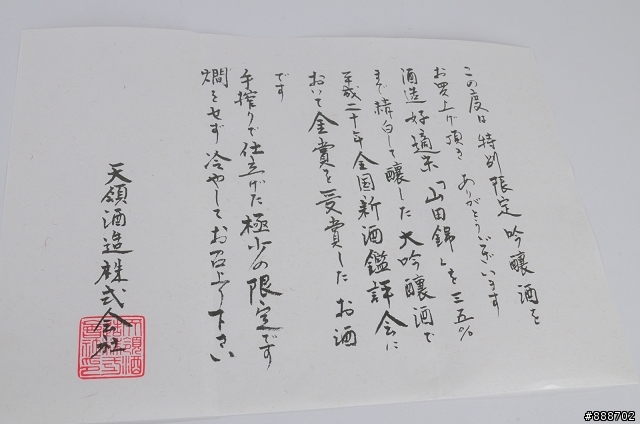 この度は特別限定吟醸酒を
お買上げ頂き ありがとうございます
酒造好適米「山田錦」を三五%
まで精白して醸した大吟醸酒で
平成二十年全国新酒鑑評会に
おいて金賞を受賞したお酒
です
手搾りで仕上げた極少の限定です
燗をせず冷やしてお召上り下さい
天領酒造株式会社
#888702